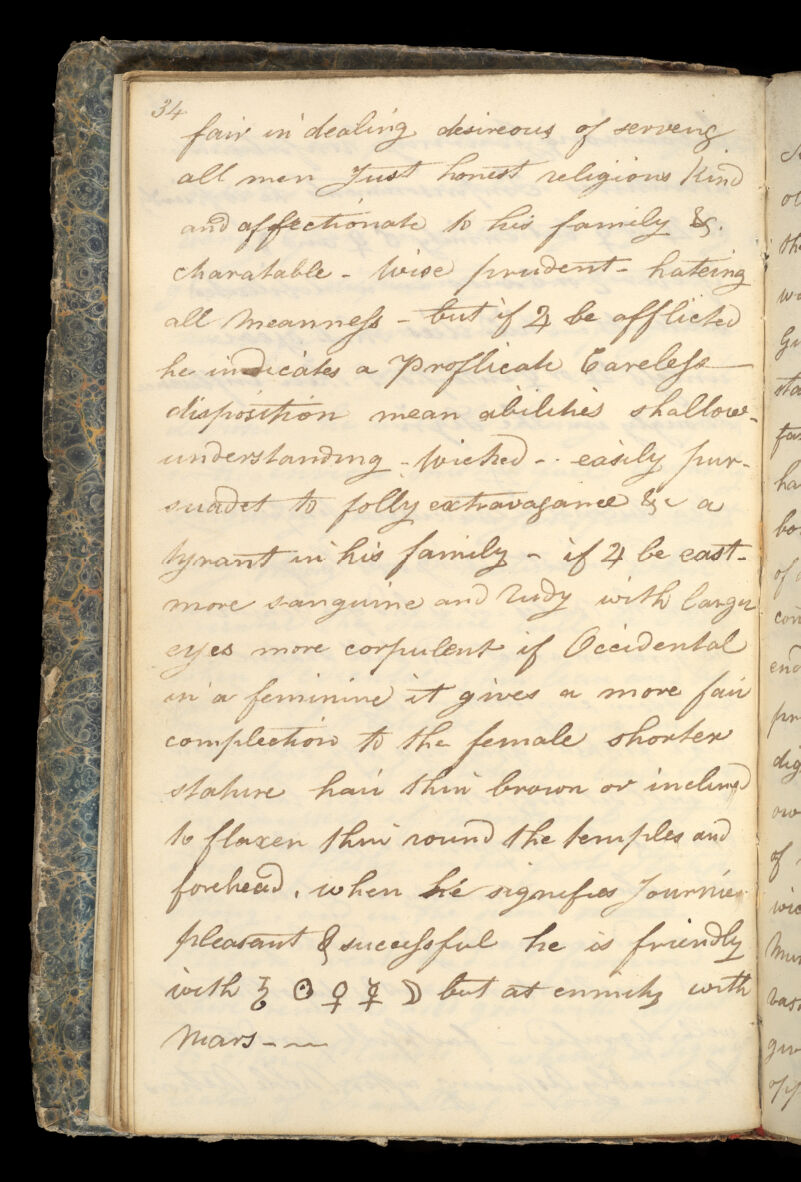 34
fair in dealing desireous of serveing
all men Just honest religious Kind
and affectionate to his family &.
charatable - Wise prudent - hateing
all Meanness - but if ♃ be afflicted
he indicates a Proflicate Careless
disposition mean abilities shallow-
understanding - Wicked - . easily pur-
suadet to folly extravagance &c a
tyrant in his family - if ♃ be east-
more sanguine and Rudy with larger
eyes more corpulent if Occidental
in a feminine it gives a more fair
complection to the female shorter
stature hair thin brown or inclined
to flaxen thin round the temples and
forehead. when he signifies Journies
pleasant & successful he is friendly
with ♄ ☉ ♀ ☿ ☽ but at enmity with
Mars - ~